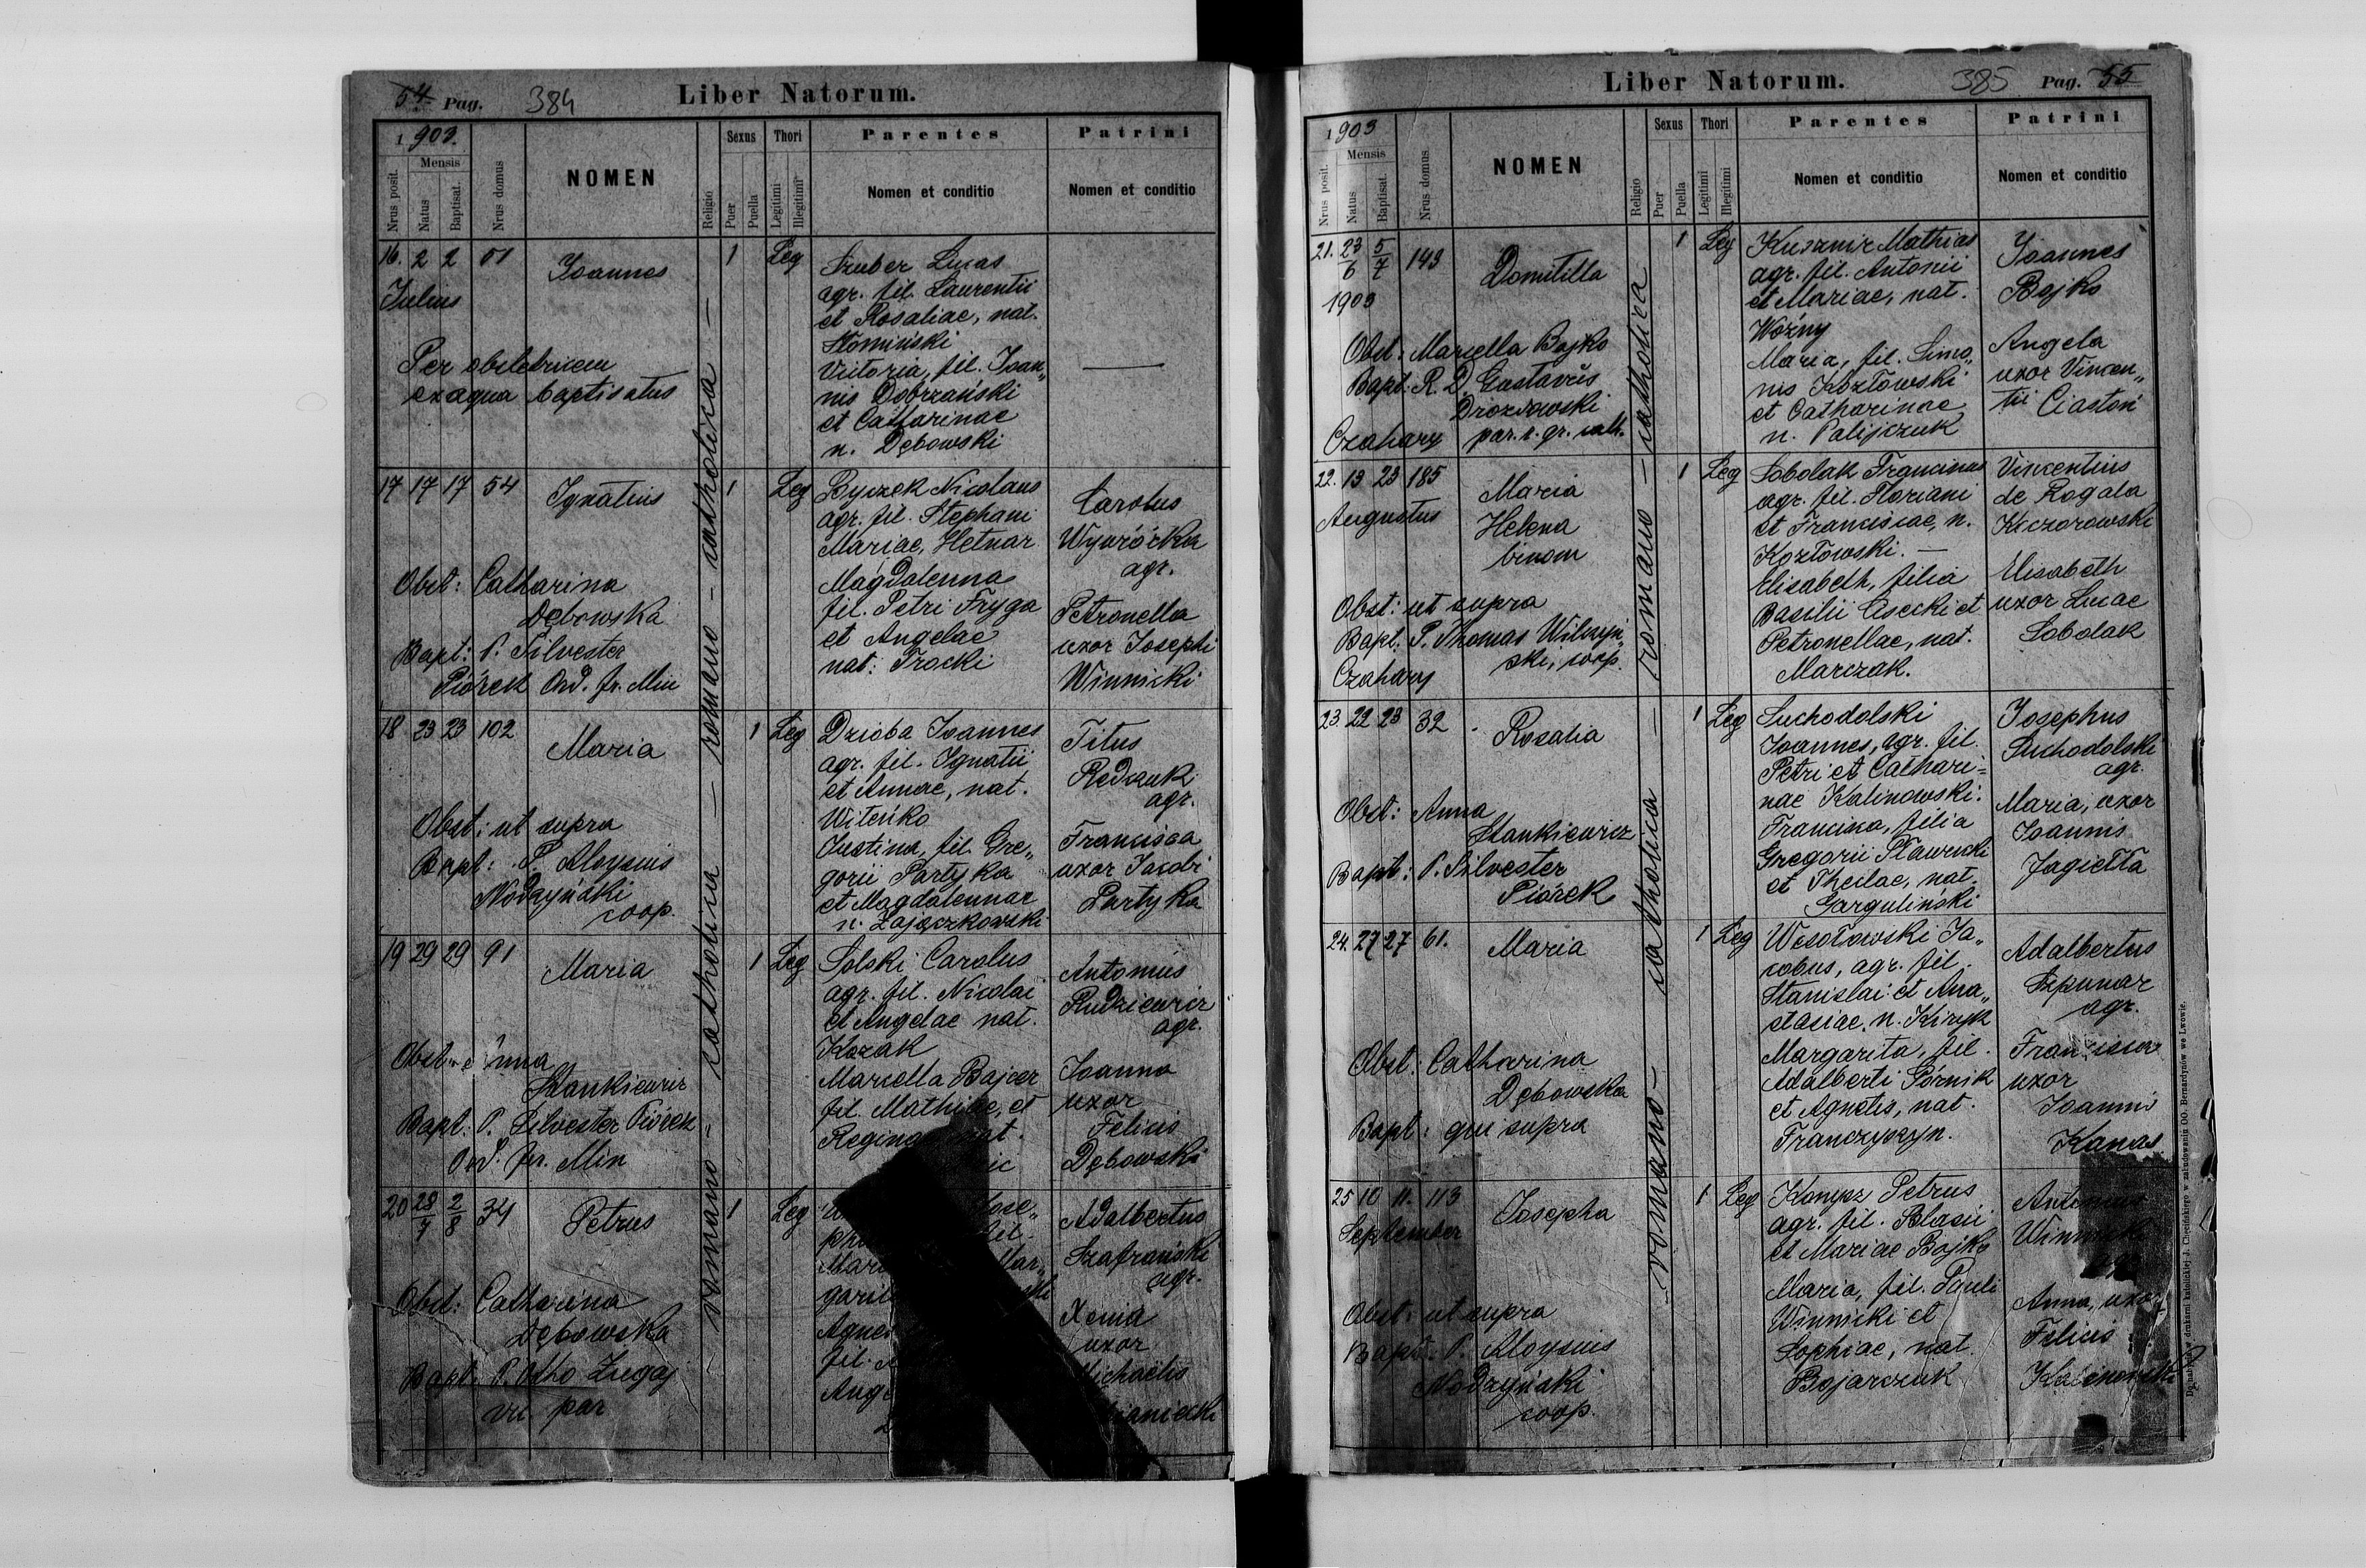 54 Pag. 384 Liber Natorum.
1903.
Nrus posit.
Mensis
Natus
Baptisat.
Nrus domus
NOMEN
Religio
Sexus
Puer
Puella
Thori
Legitimi
Illegitimi
Parentes
Nomen et conditio
Patrini
Nomen et conditio
romano - catholica — romano - catholica —
16. 2 2 51 Joannes 1 Leg
Julius
Per obstetricem
ex aqua baptisatus
Szuber Lucas
agr. fil. Laurentii
et Rosaliae, nat.
Słomiński
Victoria, fil. Joan„
nis Dobrzański
et Catharinae
n. Dębowski
—
17 17 17 54 Ignatius 1 Leg
Obst: Catharina
Dębowska
Bapt: P. Silvester
Piórek Ord. fr. Min
Byczek Nicolaus
agr. fil. Stephani
Mariae, Hetnar
Magdalenna
fil. Petri Fryga
et Angelae
nat: Trocki
Carolus
Wywrócka
agr.
Petronella
uxor Josephi
Winnicki
18 23 23 102 Maria 1 Leg
Obst: ut supra
Bapt: P. Aloysius
Nodzyński
coop.
Dzioba Joannes
agr. fil. Ignatii
et Annae, nat.
Witeńko
Justina, fil. Gre„
gorii Partyka
et Magdalennae
n. Zajączkowski
Titus
Redczuk
agr.
Francisca
uxor Jacobi
Partyka
19 29 29 91 Maria 1 Leg
Obst: Anna
Stankiewicz
Bapt: P. Silvester Piórek
Ord. fr. Min
Solski Carolus
agr. fil. Nicolai
et Angelae nat.
Kozak
Marcella Bajcer
fil. Mathiae, et
Antonius
Rudziewicz
agr.
Joanna
uxor
Felicis
Dębowski
20 28/7 2/8 34 Petrus 1 Leg
Obst: Catharina
Dębowska
Bapt. P. Otho Zugaj
vic par
Adalbertus
Szafrański
agr.
Xenia
uxor
Michaëlis
Liber Natorum. 385 Pag. 55
1903
Nrus posit.
Mensis
Natus
Baptisat.
Nrus domus.
NOMEN
Religio
Sexus
Puer
Puella
Thori
Legitimi
Illegitimi
Parentes
Nomen et conditio
Patrini
Nomen et conditio
romano - catholica — romano - catholica
21. 23/6 5/7 143 Domitilla 1 Leg
1903
Obst: Marcella Bojko
Bapt: R. D. Gustavus
Drozdowski
Czahary par. r. gr. cath.
Kusznir Mathias
agr. fil. Antonii
et Mariae, nat.
Woźny
Maria, fil. Simo„
nis Kozłowski
et Catharinae
n. Palijczuk
Joannes
Bojko
Angela
uxor Vincen„
tii Ciastoń
22. 13 23 185 Maria
Helena
binom 1 Leg
Augustus
Obst: ut supra
Bapt: P. Thomas Wilczyń„
ski, coop.
Czahary
Sobolak Franciscus
agr. fil. Floriani
et Franciscae, n.
Kozłowski. —
Elisabeth, filia
Basilii Cisecki et
Petronellae, nat.
Marczak.
Vincentius
de Rogala
Kiczorowski
Elisabeth
uxor Lucae
Sobolak
23. 22 23 32 Rosalia 1 Leg
Obst: Anna
Stankiewicz
Bapt: P. Silvester
Piórek
Suchodolski
Joannes, agr. fil.
Petri et Cathari=
nae Kalinowski.
Francisca, filia
Gregorii Sławecki
et Theclae, nat.
Garguliński
Josephus
Suchodolski
agr.
Maria, uxor
Joannis
Jagiełła
24. 27 27 61. Maria 1 Leg
Obst: Catharina
Dębowska
Bapt: qui supra
Wesołowski Ja„
cobus, agr. fil.
Stanislai et Ana„
stasiae, n. Kizyk
Margarita, fil.
Adalberti Górnik
et Agnetis, nat.
Franczyszyn.
Adalbertus
Szpunar
agr.
Francisca
uxor
Joannis
Kanas
25 10 11. 113 Josepha 1 Leg
September
Obst: ut supra
Bapt: P. Aloysius
Nodzyński
coop.
Konysz Petrus
agr. fil. Blasii
et Mariae Bojko
Maria, fil. Pauli
Winnicki et
Sophiae, nat.
Bojarczuk
Antonius
Winnicki
agr.
Anna, uxor
Felicis
Kalinowski
Do nabycia w drukarni katolickiej J. Chęcińskiego w zabudowaniu OO. Bernardynów we Lwowie.